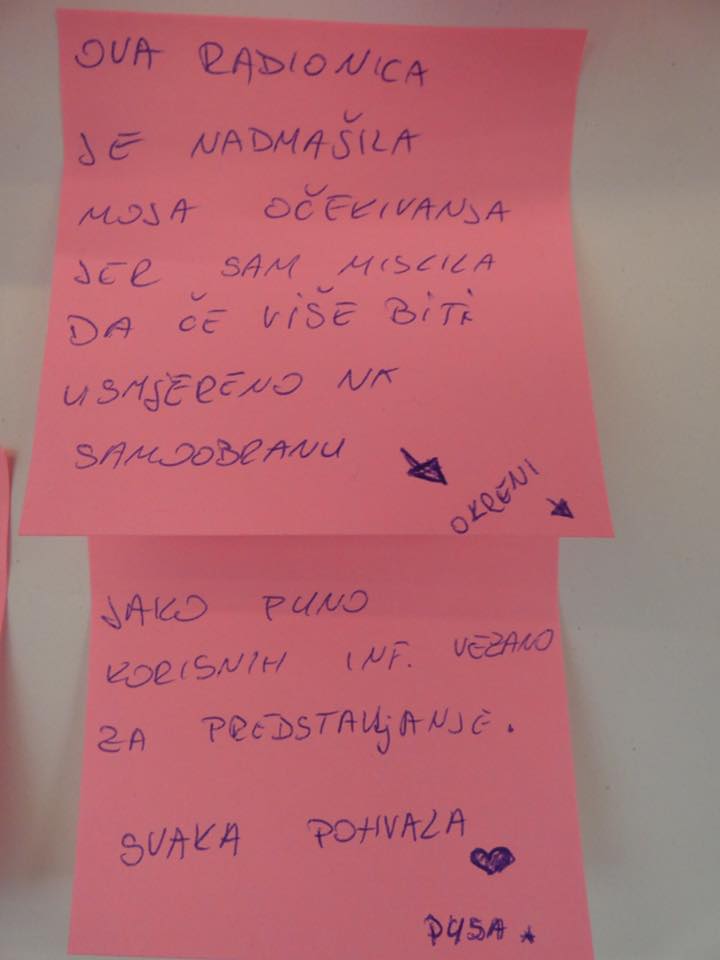 OVA RADIONICA
JE NADMAŠILA
MOJA OČEKIVANJA
JER SAM MISLILA
DA ČE VIŠE BITI
USMJERENO NA
SAMOOBRANU
OKRENI
JAKO PUNO
KORISNIH INF. VEZANO
ZA PREDSTAVLJANJE.
SVAKA POHVALA
PUSA